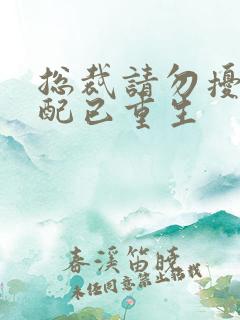 总裁請勿擾
配已重生
春溪笛曉
未经同意禁止转载